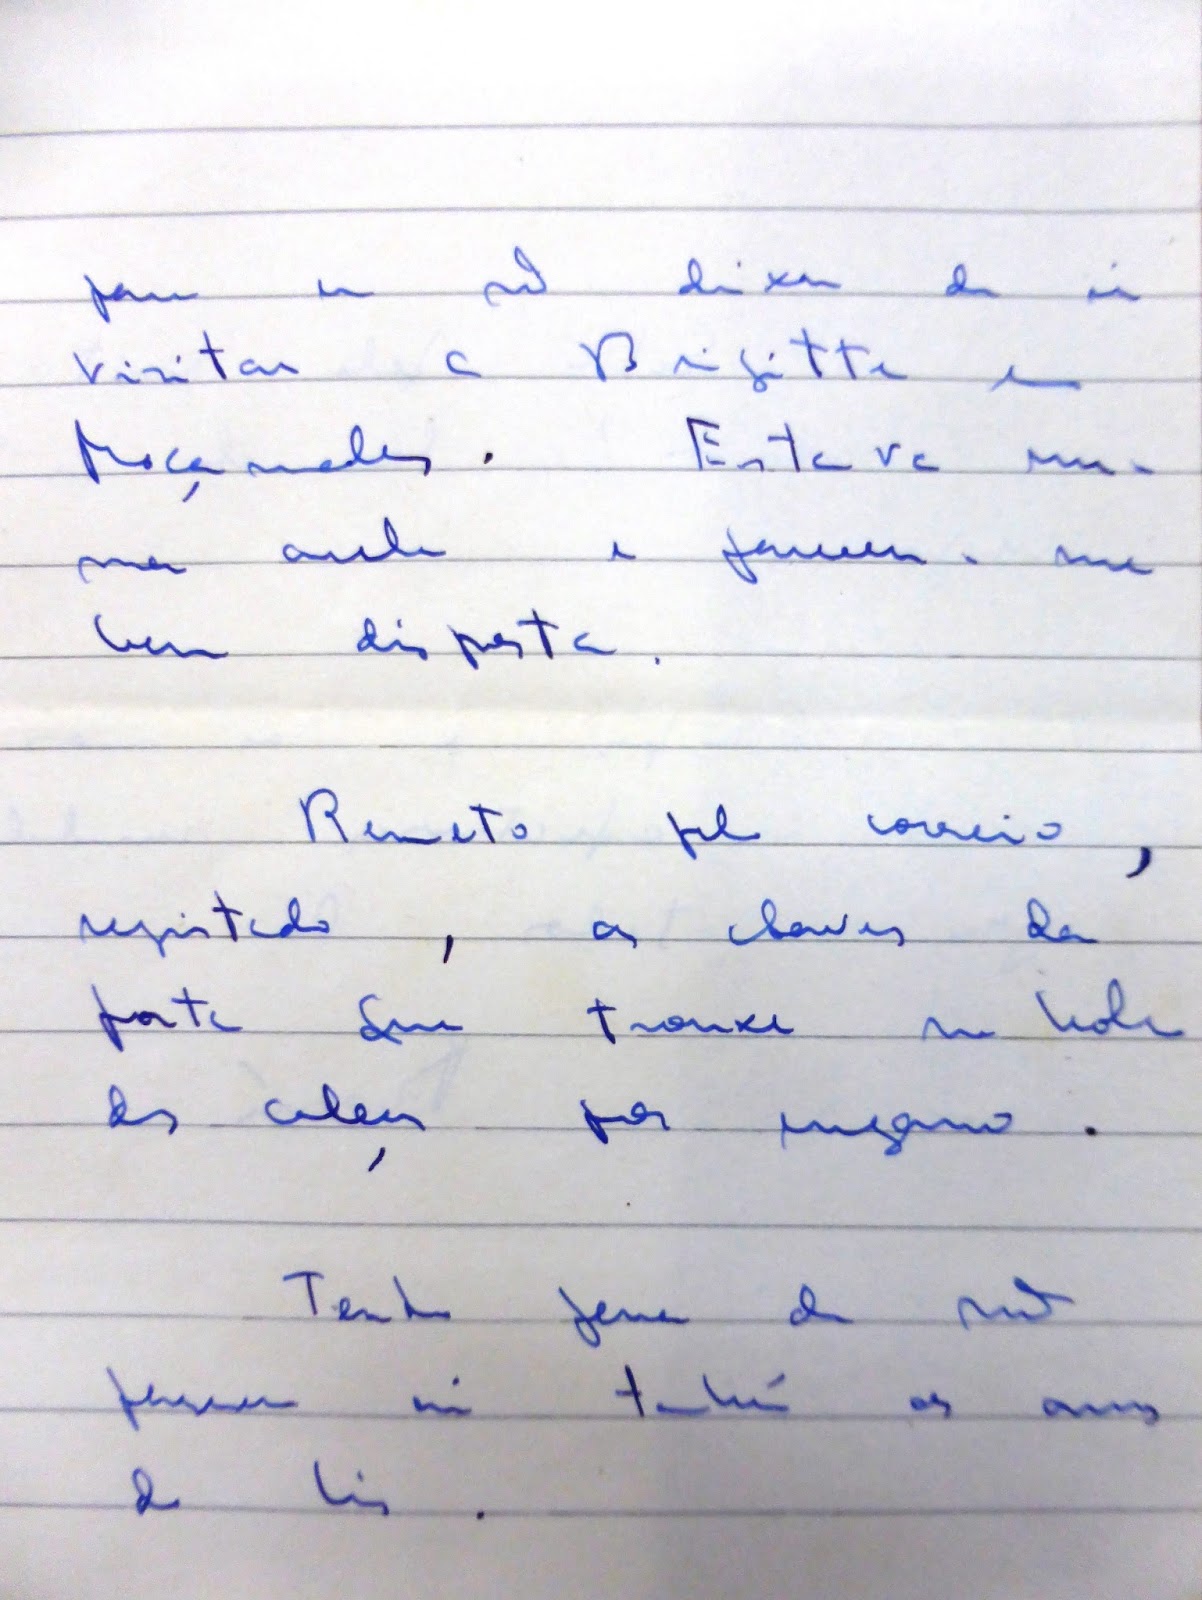 para eu não deixar de ir
visitar a Brigitte em
Moçamedes. Estava nu-
ma aula e pareceu-me
bem disposta.
Remeto pelo correio,
registado, as chaves da
porta que trouxe no bolso
das calças por engano.
Tenho pena de não
poder ir também os anos
da Lis.